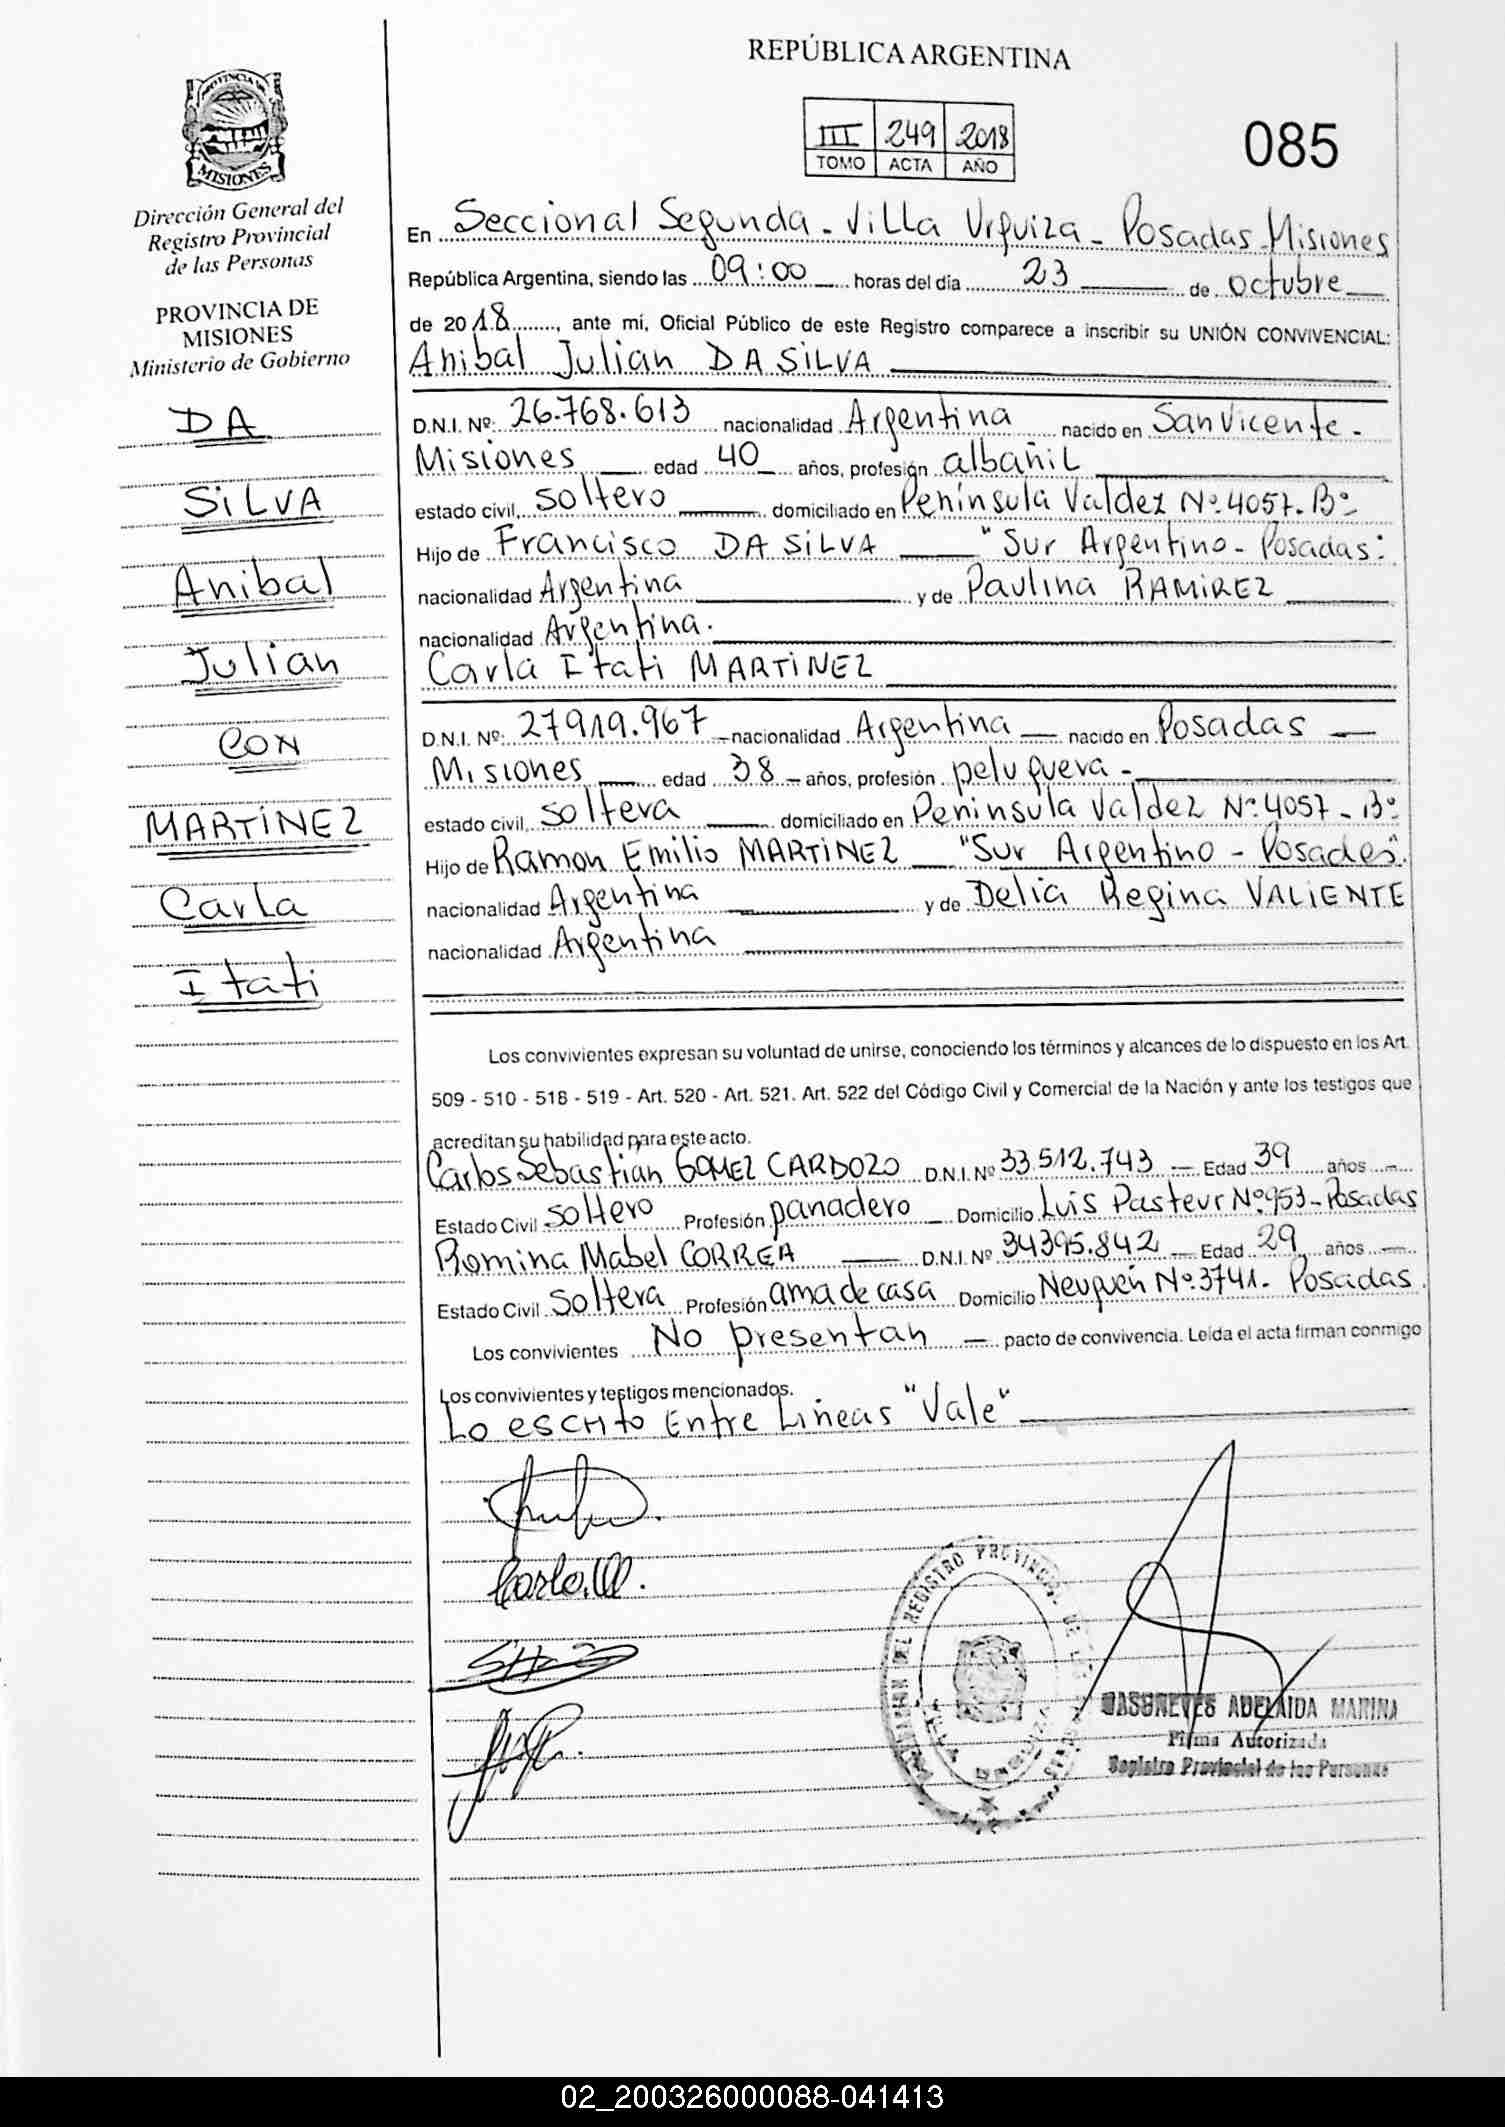 REPÚBLICA ARGENTINA
III 249 2018
TOMO ACTA AÑO
085
PROVINCIA DE
MISIONES
Dirección General del
Registro Provincial
de las Personas
PROVINCIA DE
MISIONES
Ministerio de Gobierno
DA
SILVA
Anibal
Julian
CON
MARTINEZ
Carla
Itati
En Seccional Segunda - Villa Urquiza - Posadas - Misiones
República Argentina, siendo las 09:00 horas del día 23 de octubre
de 2018, ante mí, Oficial Público de este Registro comparece a inscribir su UNIÓN CONVIVENCIAL:
Anibal Julian DA SILVA
D.N.I. Nº: 26.768.613 nacionalidad Argentina nacido en San Vicente -
Misiones edad 40 años, profesión albañil
estado civil, soltero domiciliado en Península Valdez Nº 4057. Bº
Hijo de Francisco DA SILVA "Sur Argentino - Posadas:
nacionalidad Argentina y de Paulina RAMIREZ
nacionalidad Argentina.
Carla Itati MARTINEZ
D.N.I. Nº: 27919.967 nacionalidad Argentina nacido en Posadas
Misiones edad 38 años, profesión peluquera -
estado civil, soltera domiciliado en Peninsula Valdez Nº 4057 - Bº
Hijo de Ramon Emilio MARTINEZ "Sur Argentino - Posadas".
nacionalidad Argentina y de Delia Regina VALIENTE
nacionalidad Argentina
Los convivientes expresan su voluntad de unirse, conociendo los términos y alcances de lo dispuesto en los Art.
509 - 510 - 518 - 519 - Art. 520 - Art. 521. Art. 522 del Código Civil y Comercial de la Nación y ante los testigos que
acreditan su habilidad para este acto.
Carlos Sebastián GOMEZ CARDOZO D.N.I. Nº 33.512.743 Edad 39 años
Estado Civil soltero Profesión panadero Domicilio Luis Pasteur Nº 953 - Posadas
Romina Mabel CORREA D.N.I. Nº 34395.842 Edad 29 años
Estado Civil soltera Profesión ama de casa Domicilio Neuquén Nº 3741 - Posadas
Los convivientes No presentan pacto de convivencia. Leída el acta firman conmigo
Los convivientes y testigos mencionados.
Lo escrito Entre Lineas "Vale"
Carla M.
ADELAIDA MARINA
Firma Autorizada
Registro Provincial de las Personas
02_200326000088-041413